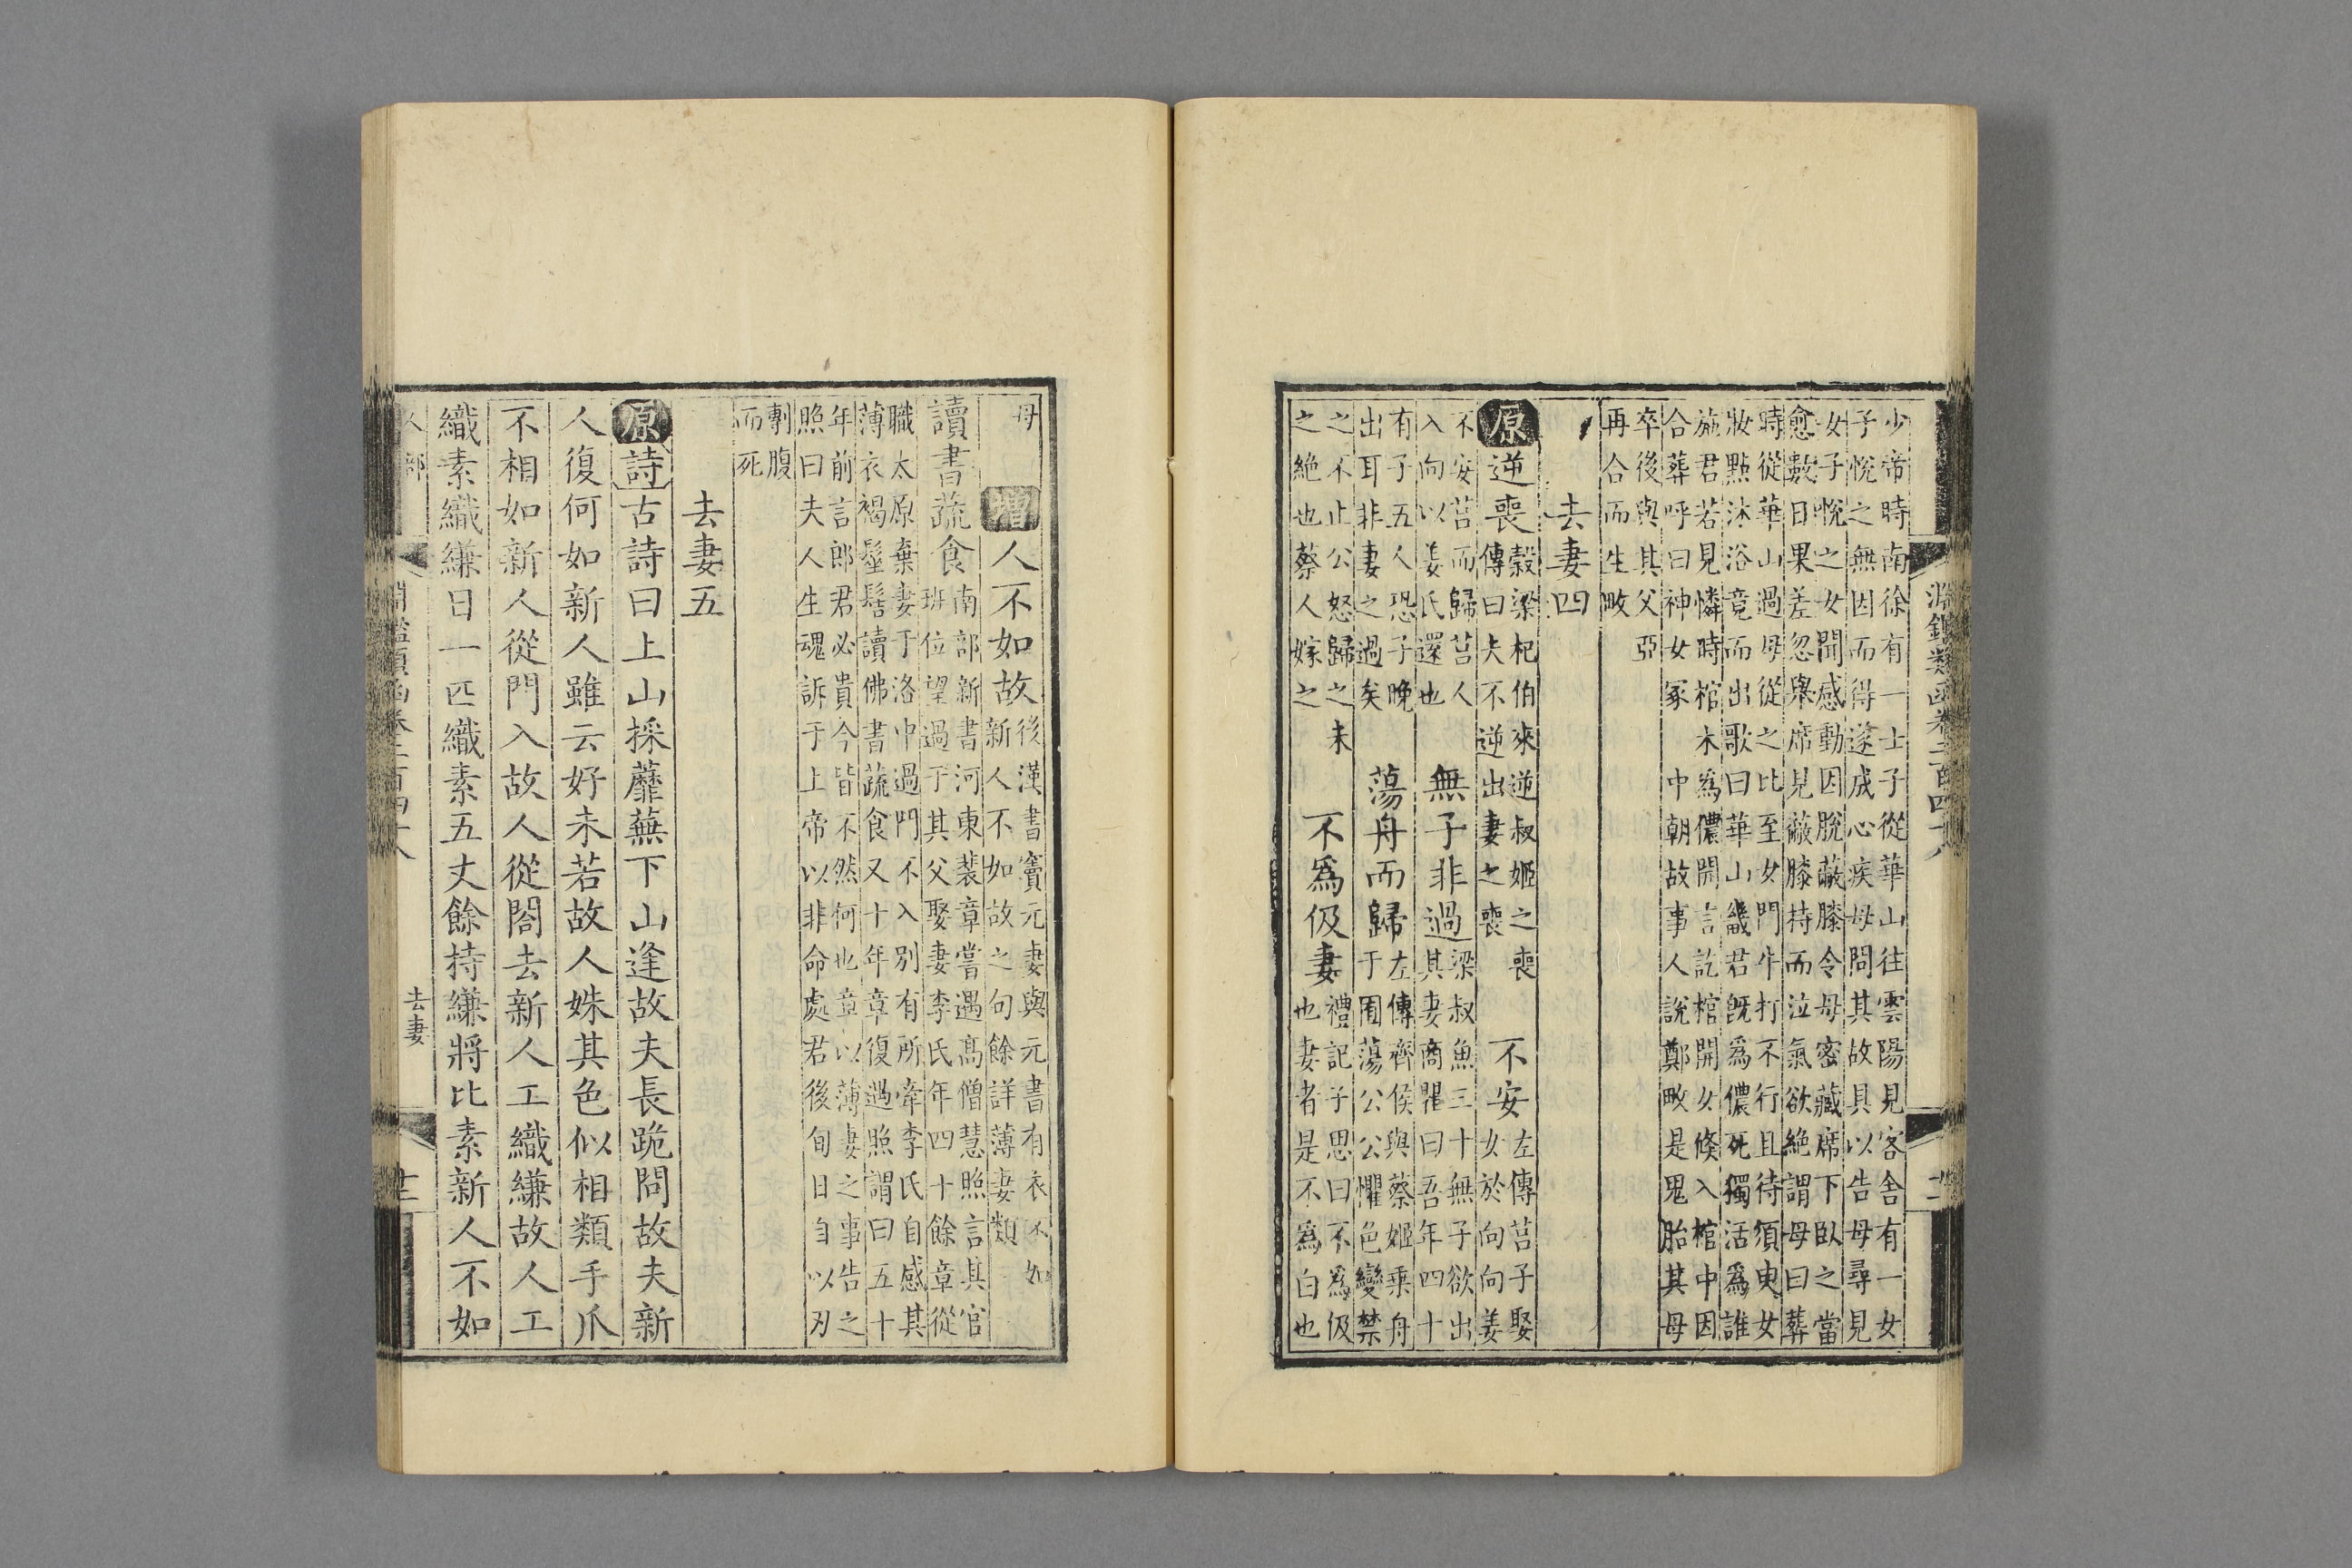 淵鑑類函卷二百四十八
少帝時南徐有一士子從華山往雲陽見客舍有一女
子悅之無因而得遂成心疾母問其故具以告母尋見
女子悅之女聞感動因脫蔽膝令母密藏席下臥之當
愈數日果差忽舉席見蔽膝持而泣氣欲絶謂母曰葬
時從華山過母從之比至女門牛打不行且待須臾女
妝點沐浴竟而出歌曰華山畿君旣爲儂死獨活爲誰
施君若見憐時棺木爲儂開言訖棺開女倐入棺中因
合葬呼曰神女冢　中朝故事人說鄭畋是鬼胎其母
卒後與其父亞
再合而生畋
去妻四
原逆喪穀梁杞伯來逆叔姬之喪
傳曰夫不逆出妻之喪　不安左傳莒子娶
女於向向姜
不安莒而歸莒人
入向以姜氏還也　無子非過梁叔魚三十無子欲出
其妻商瞿曰吾年四十
有子五人恐子晚
出耳非妻之過矣　蕩舟而歸左傳齊侯與蔡姬乘舟
于囿蕩公公懼色變禁
之不止公怒歸之未
之絶也蔡人嫁之　不爲伋妻禮記子思曰不爲伋
也妻者是不爲白也
母　增人不如故後漢書竇元妻與元書有衣不如
新人不如故之句餘詳薄妻類
讀書蔬食南部新書河東裴章嘗遇高僧慧照言其官
班位望過于其父娶妻李氏年四十餘章從
職太原棄妻于洛中過門不入別有所牽李氏自感其
薄衣褐髽髻讀佛書蔬食又十年章復過照謂曰五十
年前言郎君必貴今皆不然何也章以薄妻之事告之
照曰夫人生魂訴于上帝以非命處君後旬日自以刃
剚腹
而死
去妻五
原詩古詩曰上山採蘼蕪下山逢故夫長跪問故夫新
人復何如新人雖云好未若故人姝其色似相類手爪
不相如新人從門入故人從閤去新人工織縑故人工
織素織縑日一匹織素五丈餘持縑將比素新人不如
人部　淵鑑類函卷二百四十八　去妻